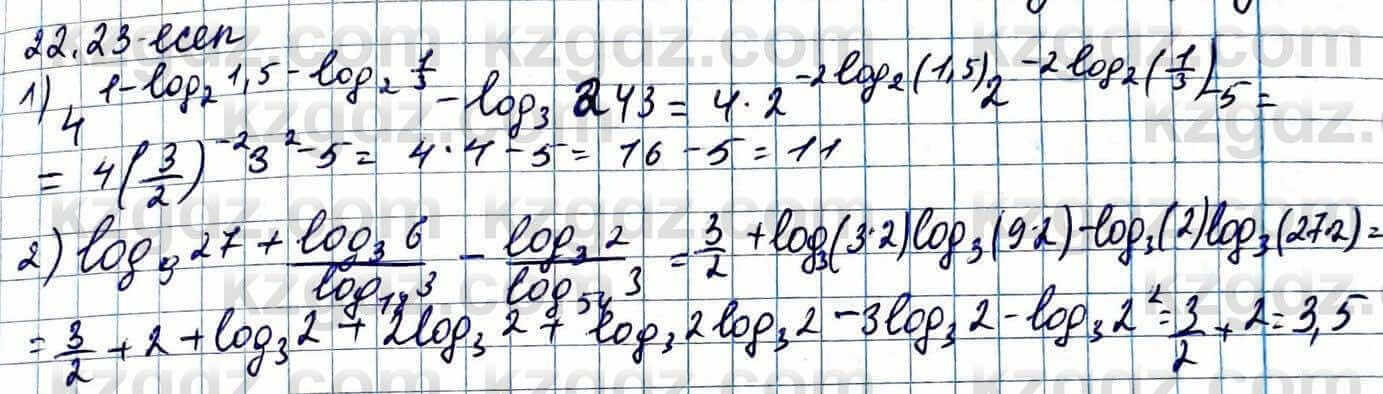 22.23-есеп
1) 4^(1-log₂1,5-log₂ 1/3) - log₃ 243 = 4·2^(-2log₂(1,5)) 2^(-2log₂(1/3)) - 5 =
= 4(3/2)^(-2) 3² - 5 = 4·4 - 5 = 16 - 5 = 11
2) log₉ 27 + log₃ 6 / log₁₈ 3 - log₃ 2 / log₅₄ 3 = 3/2 + log₃(3·2)log₃(9·2) - log₃(2)log₃(27·2) =
= 3/2 + 2 + log₃2 + 2log₃2 + log₃2log₃2 - 3log₃2 - log₃2² = 3/2 + 2 = 3,5
kzgdz.com